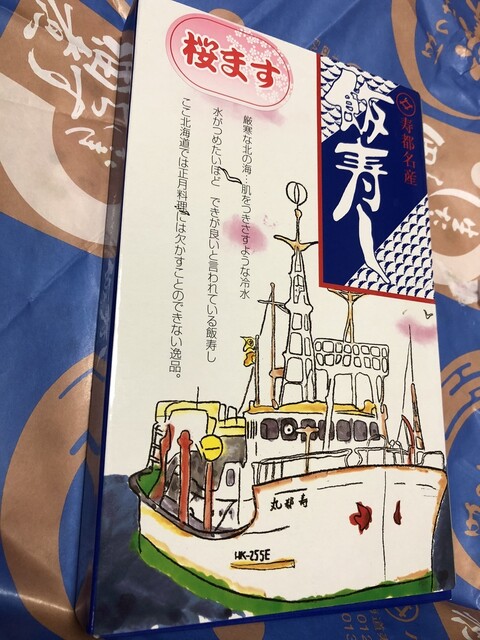 桜ます
寿都名産
飯寿し
厳寒な北の海…肌をつきさすような冷水
水がつめたいほど できが良いと言われている飯寿し
ここ北海道では正月料理には欠かすことのできない逸品。
丸都寿
HK-255E